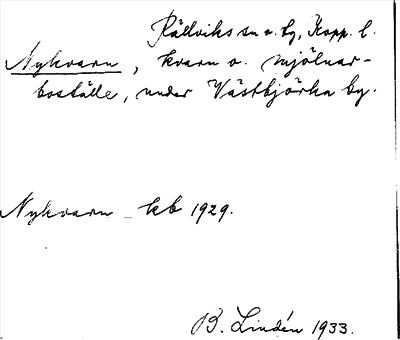 Rättviks sn o. by, Kopp. l.
Nykvarn, kvarn o. mjölnar-
boställe, under Västbjörka by.
Nykvarn _ kb 1929.
B. Lindén 1933.